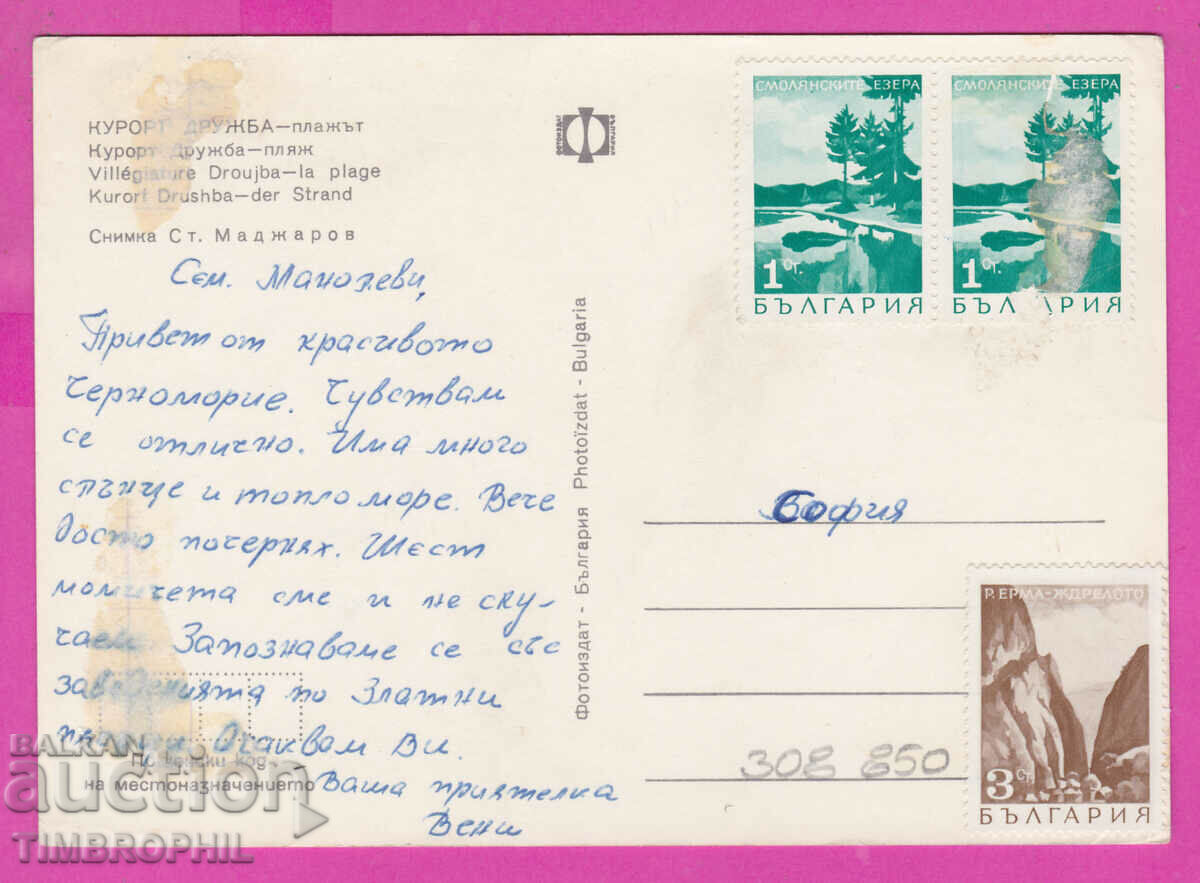 КУРОРТ ДРУЖБА—плажът
Курорт Дружба—пляж
Villégiature Droujba—la plage
Kurort Drushba—der Strand
Снимка Ст. Маджаров
ФОТОИЗДАТ
БЪЛГАРИЯ
СМОЛЯНСКИТЕ ЕЗЕРА
1 Ст.
БЪЛГАРИЯ
СМОЛЯНСКИТЕ ЕЗЕРА
1 Ст.
БЪЛГАРИЯ
Сем. Манолеви,
Привет от красивото
Черноморие. Чувствам
се отлично. Има много
слънце и топло море. Вече
доста почернях. Шест
момичета сме и не ску-
чаем. Запознаваме се със
заведенията по Златни
пясъци. Очаквам Ви.
Ваша приятелка
Вени
Пощенски код
на местоназначението
Фотоиздат - България Photoïzdat - Bulgaria
София
308 850
Р. ЕРМА-ЖДРЕЛОТО
3 Ст.
БЪЛГАРИЯ
BALKAN
auction
TIMBROPHIL